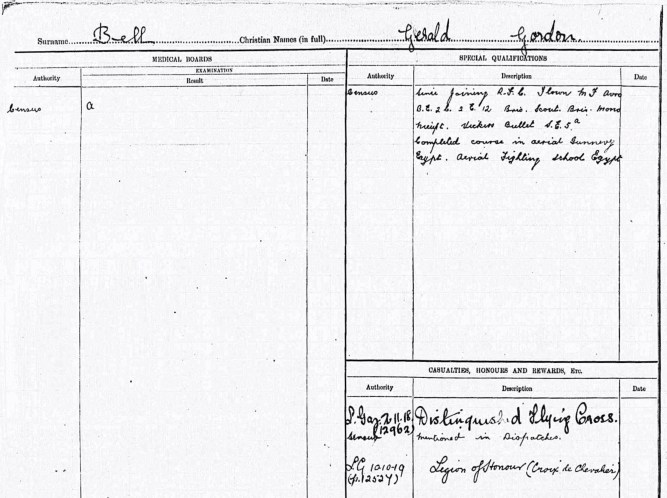 Surname Bell Christian Names (in full) Gerald Gordon
MEDICAL BOARDS
EXAMINATION
Authority Result Date
Census a
SPECIAL QUALIFICATIONS
Authority Description Date
Census Since joining R.F.C. Flown M F Avro
B.E. 2 c. 2 E /12 Bris. Scout. Bris. Mono
Vickers Bullet S.E.5.a
Completed course in aerial Gunnery
Egypt. Aerial Fighting School Egypt
CASUALTIES, HONOURS AND REWARDS, Etc.
Authority Description Date
L. Gaz. 2.11.18. Distinguished Flying Cross.
(12962)
Census Mentioned in Dispatches.
LG Legion of Honour (Croix de Chevalier)
(p. 12527)